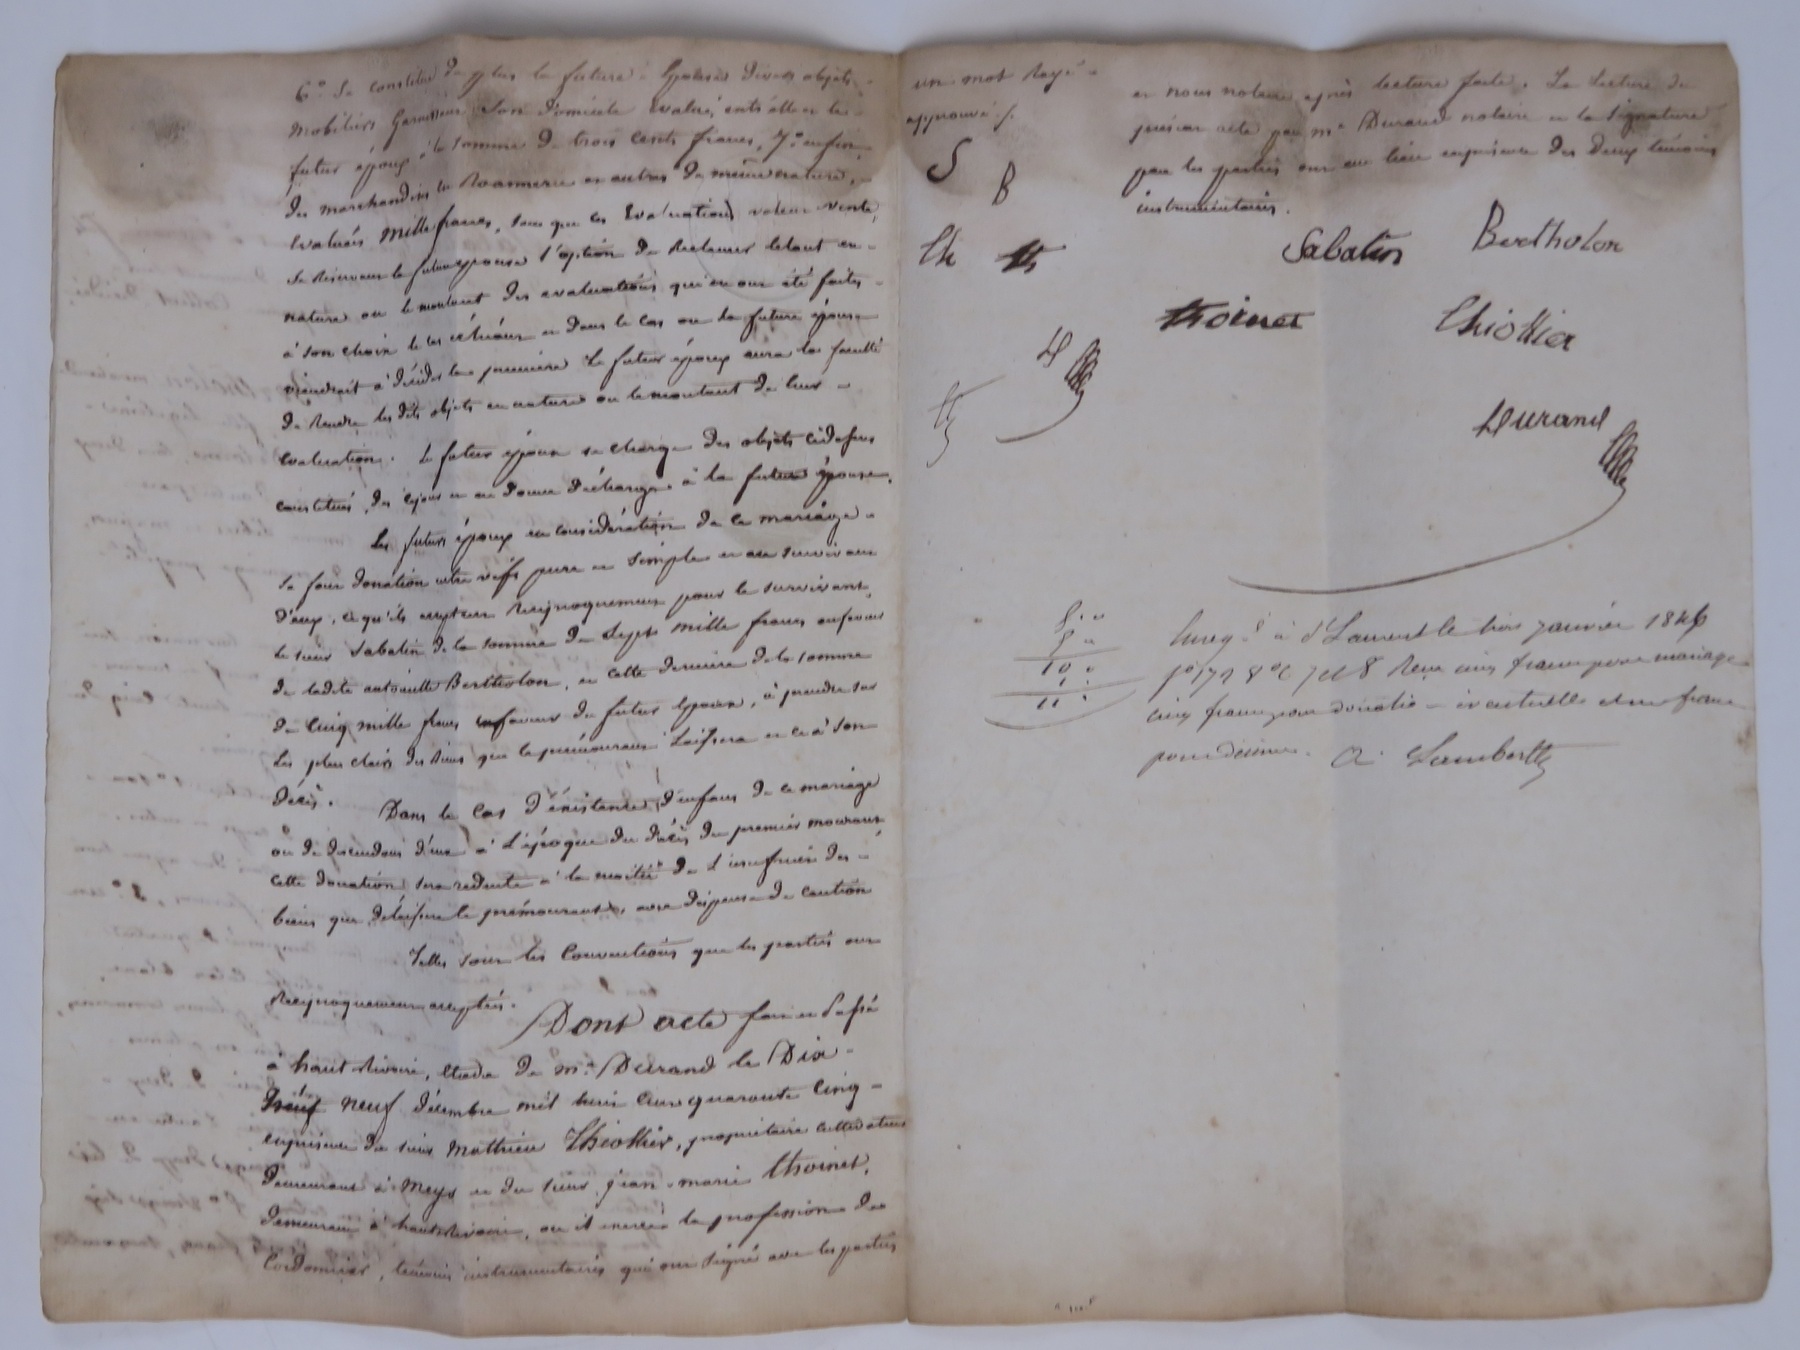 6.o Se constitue de plus la future Epouse divers objets
Mobiliers Garnissant Son Domicile Evalués entr'elle et le
futur époux à la Somme de trois cents francs, 7.o enfin
des marchandises de Roannerie et autres de même nature,
Evalués Mille francs, sans que les Evaluations valent vente,
Se réservant la future epouse l'option de Reclamer le tout en
nature ou le montant des evaluations qui en ont été faites
à son choix le cas échéant et dans le cas ou la future épouse
viendrait à décéder la première Le futur époux aura la faculté
de Rendre les dits objets en nature ou le montant de leur
Evaluation. Le futur époux se charge des objets cidessus
constitués, dès cejour et en donne décharge à la future épouse.
Les futurs époux en considération de ce mariage
Se font donation entre vifs pure et Simple et au survivant
d'eux, ce qu'ils acceptent Reciproquement pour le survivant,
le sieur Sabatin de la somme de Sept mille francs enfaveur
de ladite antoinette Bertholon, et cette derniere de la somme
de Cinq mille francs enfaveur du futur Epoux, à prendre sur
Les plus clairs des biens que le prémourant Laissera et ce à Son
décès.
Dans le Cas d'éxistence d'enfans de ce mariage
ou de descendans d'eux à L'époque du décès du premier mourant,
cette donation sera reduite à la moitié de L'usufruit des
biens que délaissera le prémourant, avec dispense de caution
Telles sont les Conventions que les parties ont
Reciproquement acceptées.
Dont acte fait et Passé
à haut Rivoire, etude de me. Durand le Dix
neuf décembre mil huit cent quarante Cinq
enprésence du sieur Mathieu Thiollier, propriétaire cultivateur
Demeurant à Meys et du sieur jean-marie thoinet,
demeurant à hautRivoire, ou il exerce la profession de
Cordonnier, témoins instrumentaires qui ont signé avec les parties
un mot Rayé
approuvé
S B
th th
D
et nous notaire après lecture faite. La Lecture du
présent acte par me Durand notaire et la Signature
par les parties ont eu lieu enprésence des deux témoins
instrumentaires.
Sabatin Bertholon
thoinet thiollier
Durand
5. "
5 "
10 "
1 "
11 "
Enreg.é à St Laurent le trois janvier 1846
fo 172 Vo C 7 et 8 Reçu cinq francs pour mariage
cinq francs pour donation éventuelle et un franc
pour décime. Lambert